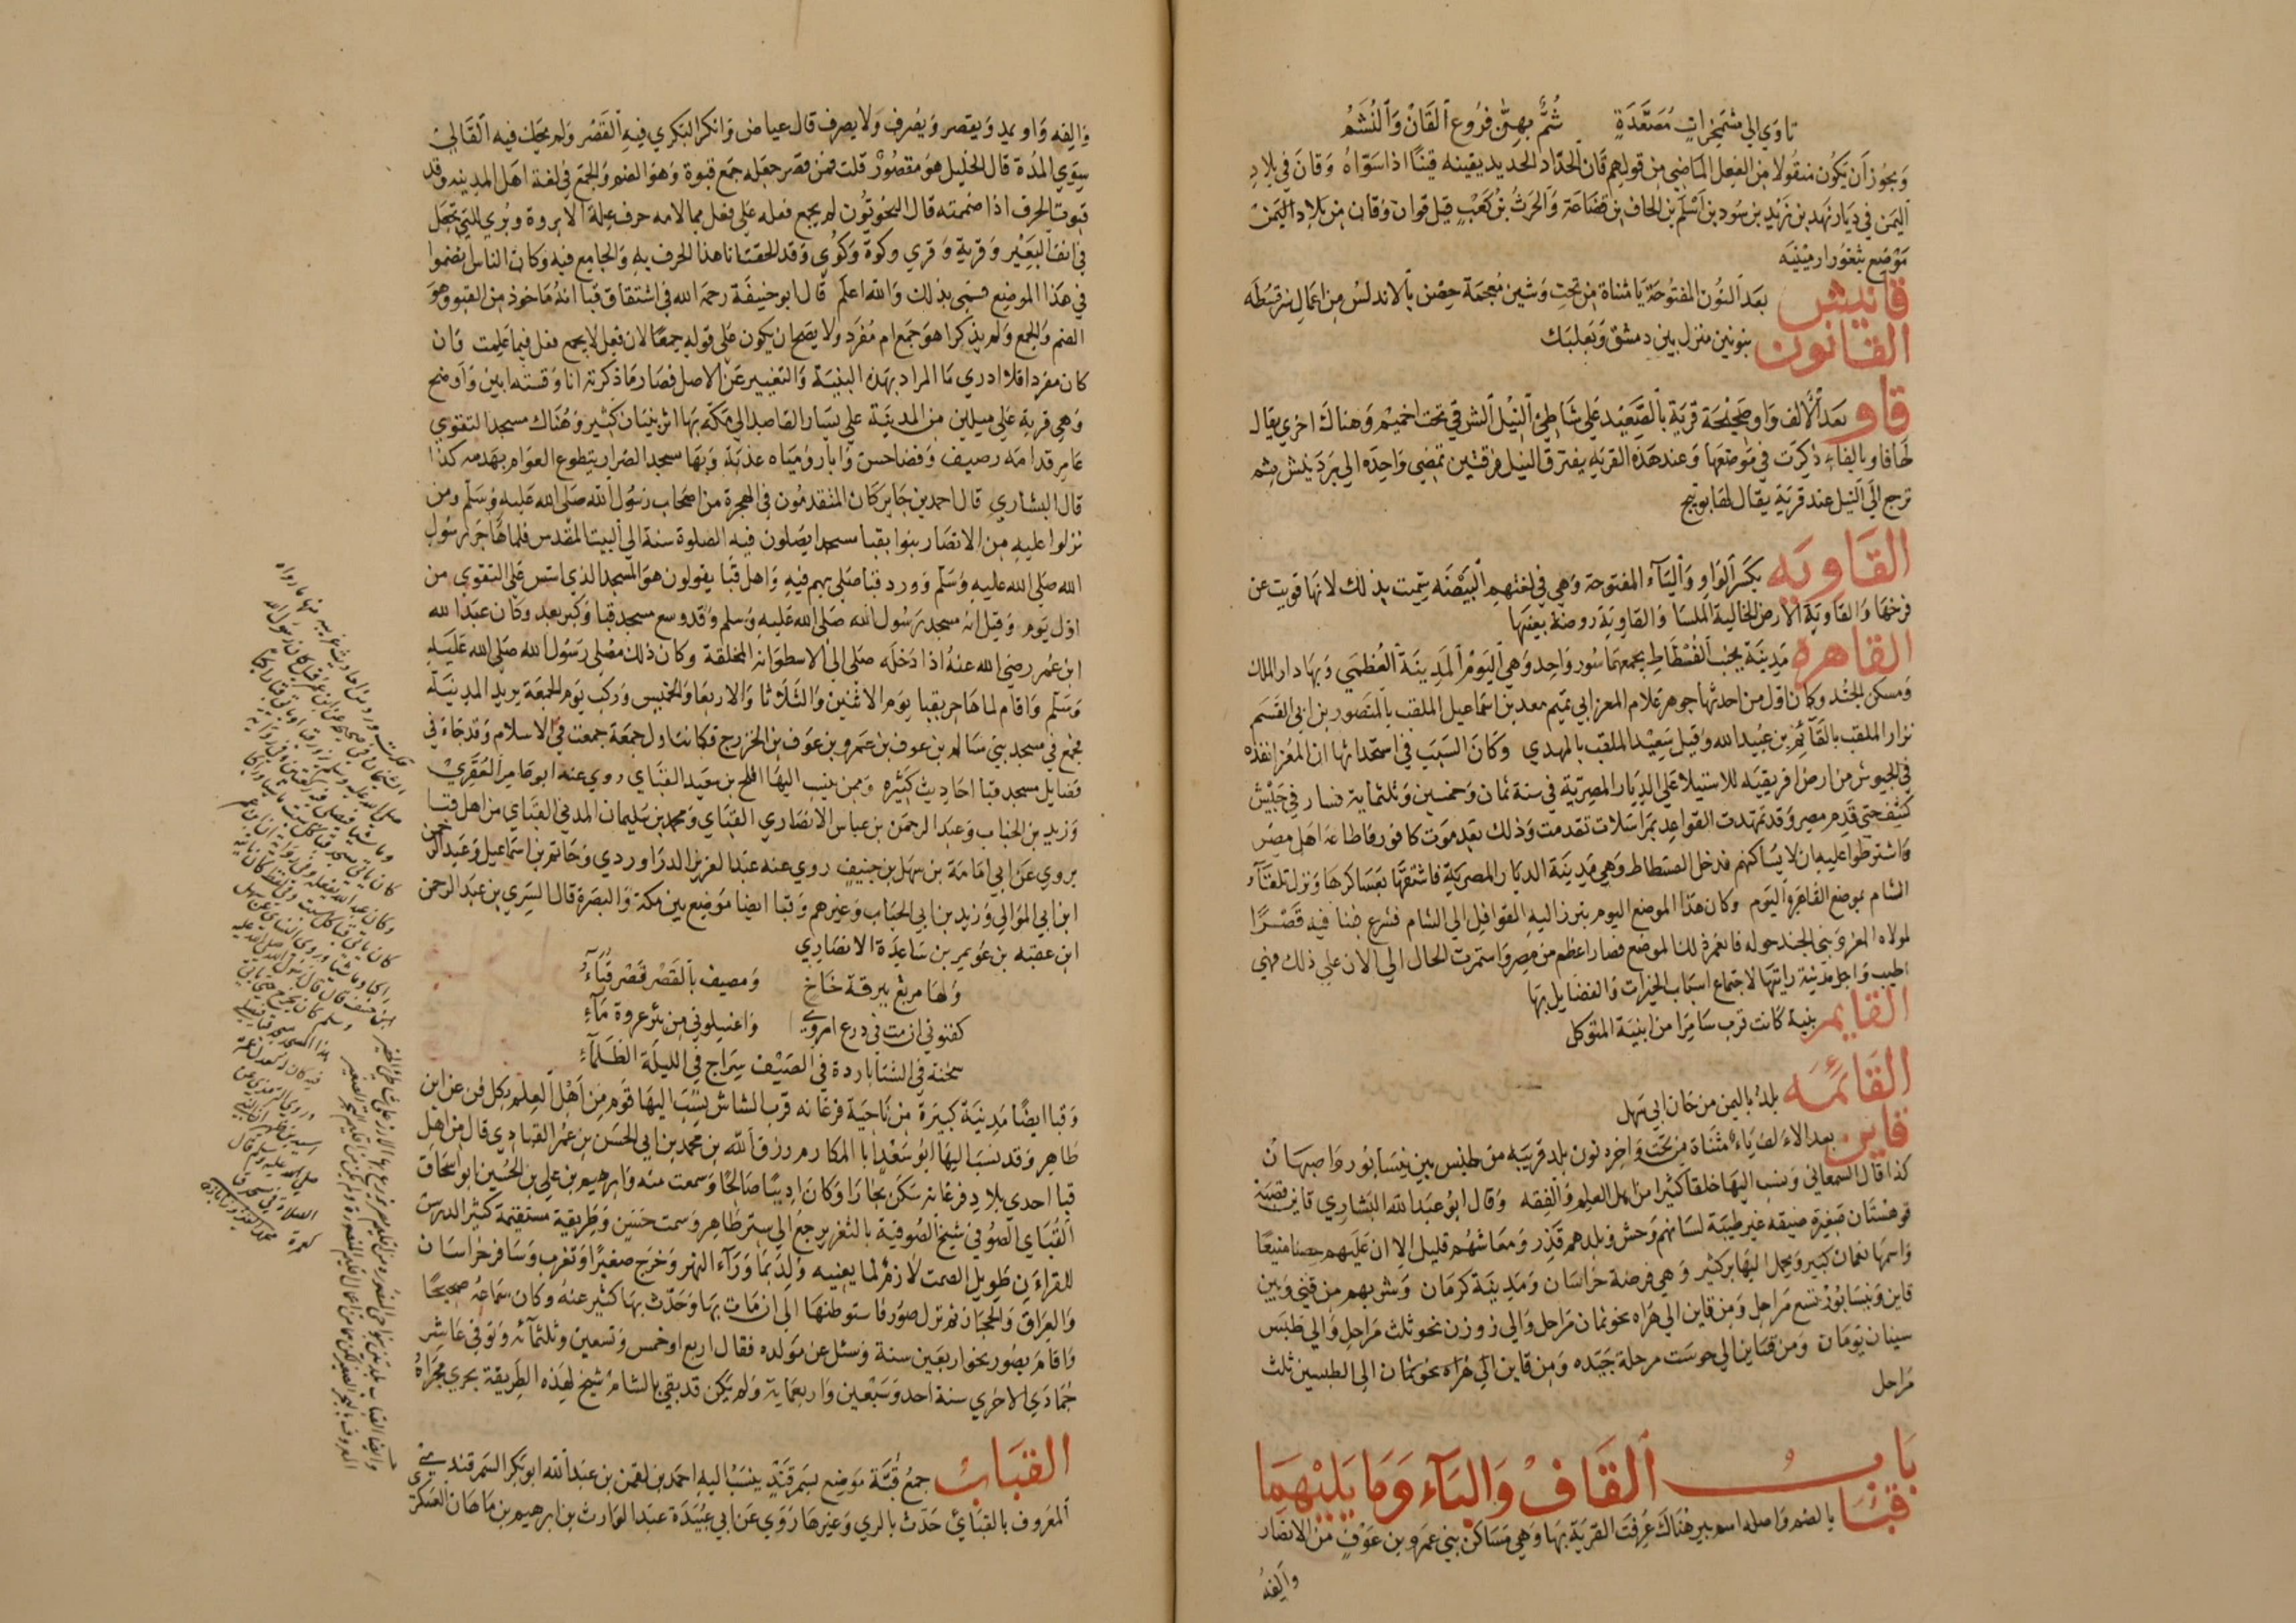 تاوي الي مشمخرات مصعدة شم بهن فروع القان والنشم
ويجوز ان يكون منقولا من الفعل الماضي من قولهم قان الحداد الحديد يقينه قينا اذا سواه وقان في بلاد
اليمن في ديار نهد بن زيد بن سود بن اسلم بن الحاف بن قضاعة والحرث بن كعب قيل قوان وقان من بلاد اليمن
موضع بثغور ارمينيه
قانيش بعد النون المفتوحة يا مثناة من تحت وشين معجمة حصن بالاندلس من اعمال سرقسطه
القانون بنونين منزل بين دمشق وبعلبك
قاو بعد الالف واو صحيحة قرية بالصعيد علي شاطئ النيل الشرقي تحت اخميم وهناك اخري يقال
لها فاو بالفاء ذكرت في موضعها وعند هذه القريه يفترق النيل فرقتين تمضي واحده الي بردنيش ثم
ترجع الي النيل عند قرية يقال لها بوتيج
القاويه بكسر الواو والياء المفتوحة وهي في لغتهم البيضه سميت بذلك لانها قويت عن
فرخها والقاوية الارض الخالية الملسا والقاوية روضة بعينها
القاهرة مدينة بجنب الفسطاط يجمعهما سور واحد وهي اليوم المدينة العظمي وبها دار الملك
ومسكن الجند وكان اول من احدثها جوهر غلام المعز ابي تميم معد بن اسماعيل الملقب بالمنصور بن ابي القسم
نزار الملقب بالقائم بن عبيد الله وقيل سعيد الملقب بالمهدي وكان السبب في استحداثها ان المعز انفذه
في الجيوش من ارض افريقيه للاستيلا علي الديار المصرية في سنة ثمان وخمسين وثلثماية فسار في جيش
كثيف حتي قدم مصر وقد تمهدت القواعد بمراسلات تقدمت وذلك بعد موت كافور فاطاعه اهل مصر
واشترطوا عليه ان لا يساكنهم فدخل الفسطاط وهي مدينة الديار المصرية فاشتقها بعساكرها ونزل تلقاء
الشام بموضع القاهرة اليوم وكان هذا الموضع اليوم تبرز اليه القوافل الي الشام فشرع فبنا فيه قصرا
لمولاه المعز وبني الجند حوله فانعمر ذلك الموضع فصار اعظم من مصر واستمرت الحال الي الان علي ذلك فهي
اطيب واجل مدينة رايتها لاجتماع اسباب الخيرات والفضايل بها
القايم بنية كانت قرب سامرا من ابنية المتوكل
القائمه بلد باليمن من خان ابي سهل
قاين بعد الالف ياء مثناة من تحت واخره نون بلد قريبه من طبس بين نيسابور واصبهان
كذا قال السمعاني وينسب اليها خلقا كثيرا من اهل العلم والفقه وقال ابو عبد الله البشاري قاين قصبة
قوهستان صغيرة ضيقه غير طيبة لسانهم وحش وبلدهم قذر ومعاشهم قليل الا ان عليهم حصنا منيعا
واسمها نعمان كبير ويحمل اليها بز كثير وهي فرضة خراسان ومدينة كرمان وشربهم من قني وبين
قاين ونيسابور تسع مراحل ومن قاين الي هراه نحو ثمان مراحل والي زوزن نحو ثلث مراحل والي طبس
سينان يومان ومن قاين الي خوست مرحلة جيده ومن قاين الي هراه نحو ثمان الي الطبسين ثلث
مراحل
باب القاف والباء وما يليهما
قبا بالضم واصله اسم بير هناك عرفت القرية بها وهي مساكن بني عمرو بن عوف من الانصار
والفه
والفه واو يمد ويقصر ويصرف ولا يصرف قال عياض وانكر البكري فيه القصر ولم يحك فيه القالي
سوي المدة قال الخليل هو مقصور قلت فمن قصر جعله جمع قبوة وهو الضم والجمع في لغة اهل المدينه وقد
قبوت الحرف اذا ضممته قال النحويون لم يجمع فعله علي فعل مما لامه حرف علة الا بروة وبري للتي تجعل
في انف البعير وقرية وقري وكوة وكوي وقد الحقنا نا هذا الحرف به والجامع فيه وكان الناس يضموا
في هذا الموضع فسمي بذلك والله اعلم قال ابو حنيفة رحمه الله في اشتقاق قبا انه ماخوذ من القبو وهو
الضم والجمع ولم يذكر اهو جمع ام مفرد ولا يصح ان يكون علي قوله جمعا لان فعل لا يجمع فعل فيما علمت وان
كان مفردا فلا ادري ما المراد بهذه البنية والتغيير عن الاصل فصار ما ذكرته انا وقسته ابين واوضح
وهي قرية علي ميلين من المدينة علي يسار القاصد الي مكة بها اثر بنيان كثير وهناك مسجد التقوي
عامر قدامه رصيف وفضا حسن وابار ومياه عذبة وبها مسجد الضرار يتطوع العوام بهدمه كذا
قال البشاري قال احمد بن جابر كان المتقدمون في الهجرة من اصحاب رسول الله صلي الله عليه وسلم ومن
نزلوا عليه من الانصار بنوا بقبا مسجدا يصلون فيه الصلوة سنة الي البيت المقدس فلما هاجر رسول
الله صلي الله عليه وسلم وورد قبا صلي بهم فيه واهل قبا يقولون هو المسجد الذي اسس علي التقوي من
اول يوم وقيل انه مسجد رسول الله صلي الله عليه وسلم وقد وسع مسجد قبا وكبر بعد وكان عبد الله
ابن عمر رضي الله عنه اذا دخله صلي الي الاسطوانه المخلقة وكان ذلك مصلي رسول الله صلي الله عليه
وسلم واقام لما هاجر بقبا يوم الاثنين والثلاثا والاربعا والخميس وركب يوم الجمعة يريد المدينة
فجمع في مسجد بني سالم بن عوف بن عمرو بن عوف بن الخزرج فكانت اول جمعة جمعت في الاسلام وقد جاءة في
فضايل مسجد قبا احاديث كثيره وممن ينسب اليها افلح بن سعيد القباي روي عنه ابو عامر العقدي
وزيد بن الحباب وعبد الرحمن بن عباس الانصاري القباي ومحمد بن سليمان المدني القباي من اهل قبا
يروي عن ابي امامة بن سهل بن حنيف روي عنه عبد العزيز الدراوردي وحاتم بن اسماعيل وعبد الرحمن
ابن ابي الموالي وزيد بن ابي الحباب وغيرهم وقبا ايضا موضع بين مكة والبصرة قال السري بن عبد الرحمن
ابن عقبه بن عويمر بن ساعدة الانصاري
ولها مربع ببرقة خاخ ومصيف بالقصر قصر قباء
كفنوني ان مت في درع اروي واغسلوني من بئر عروة ماء
سخنة في الشتا باردة في الصيف سراج في الليلة الظلماء
وقبا ايضا مدينة كبيرة من ناحية فرغانه قرب الشاش ينسب اليها قوم من اهل العلم بكل فن عن ابن
طاهر وقد نسب اليها ابو سعد ابا المكارم رزق الله بن محمد بن ابي الحسن بن عمر القباوي قال من اهل
قبا احدي بلاد فرغانه سكن بخارا وكان اديبا صالحا وسمعت منه وابرهيم بن علي بن الحسين ابو اسحاق
القباي الصوفي شيخ الصوفية بالثغر يرجع الي ستر ظاهر وسمت حسن وطريقة مستقيمة كثير الدرس
للقراءن طويل الصمت لازم لما يعنيه ولد بما وراء النهر وخرج صغيرا وتغرب وسافر خراسان
والعراق والحجاز ثم نزل صور فاستوطنها الي ان مات بها وحدث بها كثير عنه وكان سماعه صحيحا
واقام بصور نحو اربعين سنة وسئل عن مولده فقال اربع او خمس وتسعين وثلثمائه وتوفي عاشر
جمادي الاخري سنة احد وسبعين واربعماية ولم يكن قد بقي بالشام شيخ لهذه الطريقة يجري مجراه
القباب جمع قبة موضع بسمرقند ينسب اليه احمد بن لقمن بن عبد الله ابو بكر السمرقندي
المعروف بالقباي حدث بالري وغيرها روي عن ابي عبيدة عبد الوارث بن ابرهيم بن ماهان العسكري